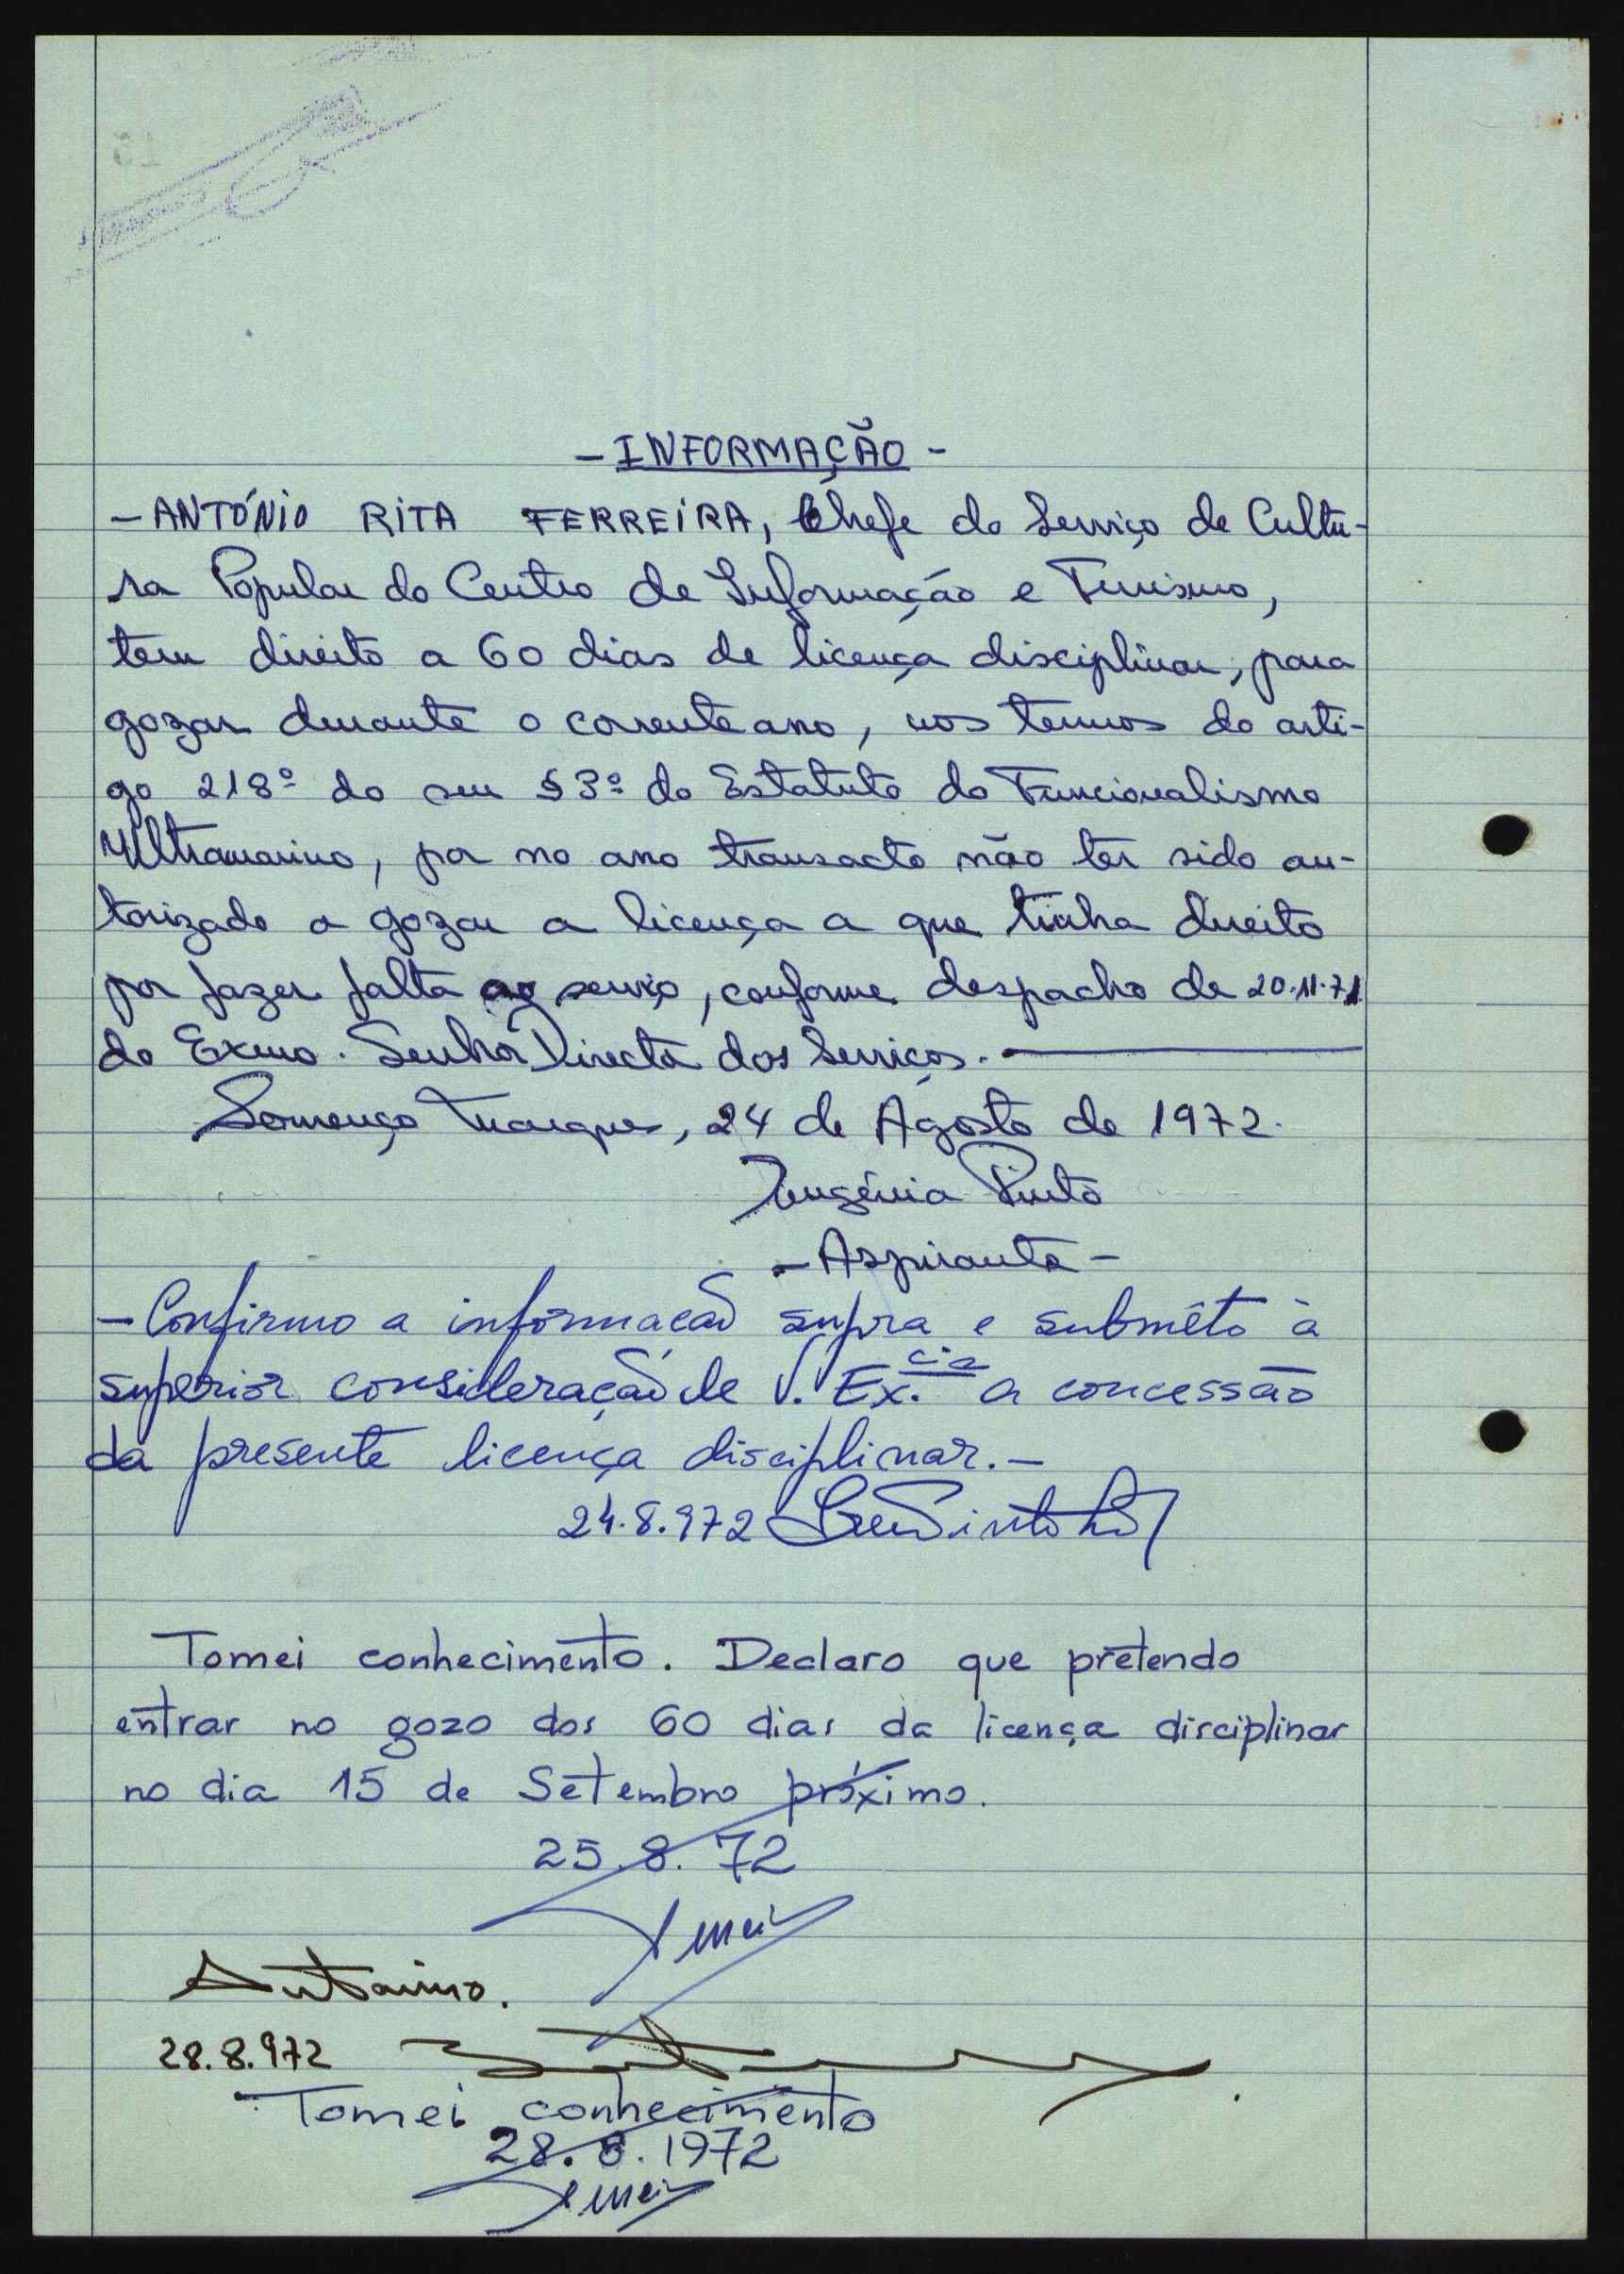 - INFORMAÇÃO -
- ANTÓNIO RITA FERREIRA, Chefe do Serviço de Cultu-
ra Popular do Centro de Informação e Turismo,
tem direito a 60 dias de licença disciplinar, para
gozar durante o corrente ano, nos termos do arti-
go 218º do seu § 3º do Estatuto do Funcionalismo
Ultramarino, por no ano transacto não ter sido au-
torizado a gozar a licença a que tinha direito
por fazer falta ao serviço, conforme despacho de 20.11.71
do Exmo. Senhor Director dos Serviços.
Lourenço Marques, 24 de Agosto de 1972.
Eugénia Pinto
- Aspirante -
- Confirmo a informação supra e submêto à
superior consideração de V. Ex.cia a concessão
da presente licença disciplinar. -
24.8.972
Tomei conhecimento. Declaro que pretendo
entrar no gozo dos 60 dias da licença disciplinar
no dia 15 de Setembro próximo.
25.8.72
Autorizo.
28.8.972
Tomei conhecimento
28.8.1972